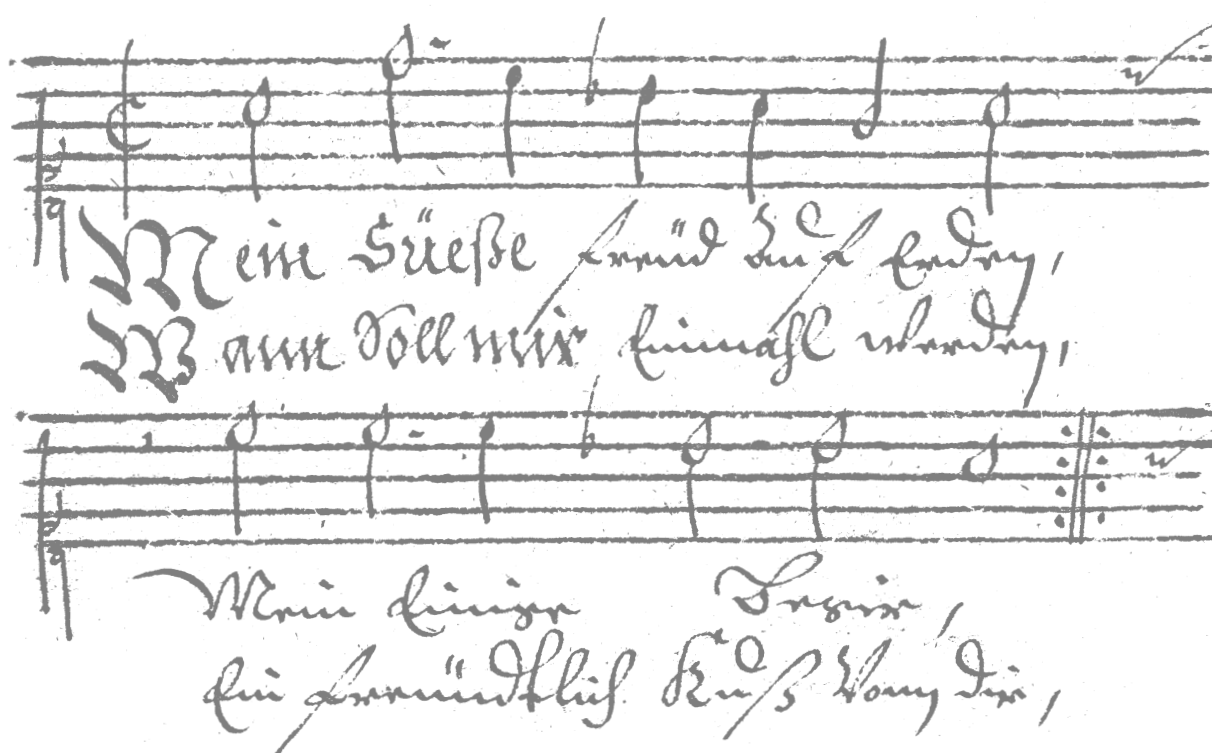 Mein Süeße freüd Auf Erden,
Wann Soll mir Einmahl werden,
Mein Einige Begir,
Ein freündtlich Kuß Vonn dir,